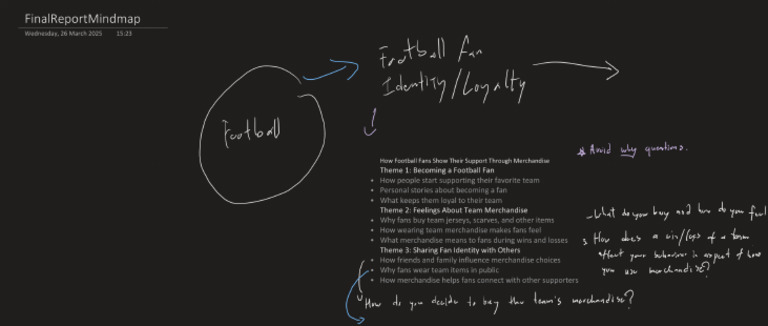 FinalReportMindmap
Wednesday, 26 March 2025 15:23
Football
Football fan
Identity/Loyalty
How Football Fans Show Their Support Through Merchandise
Theme 1: Becoming a Football Fan
• How people start supporting their favorite team
• Personal stories about becoming a fan
• What keeps them loyal to their team
Theme 2: Feelings About Team Merchandise
• Why fans buy team jerseys, scarves, and other items
• How wearing team merchandise makes fans feel
• What merchandise means to fans during wins and losses
Theme 3: Sharing Fan Identity with Others
• How friends and family influence merchandise choices
• Why fans wear team items in public
• How merchandise helps fans connect with other supporters
How do you decide to buy the team's merchandise?
* Avoid why questions.
- What do you buy and how do you feel
How does a win/loss of a team
affect your behaviour in aspect of how
you use merchandise?